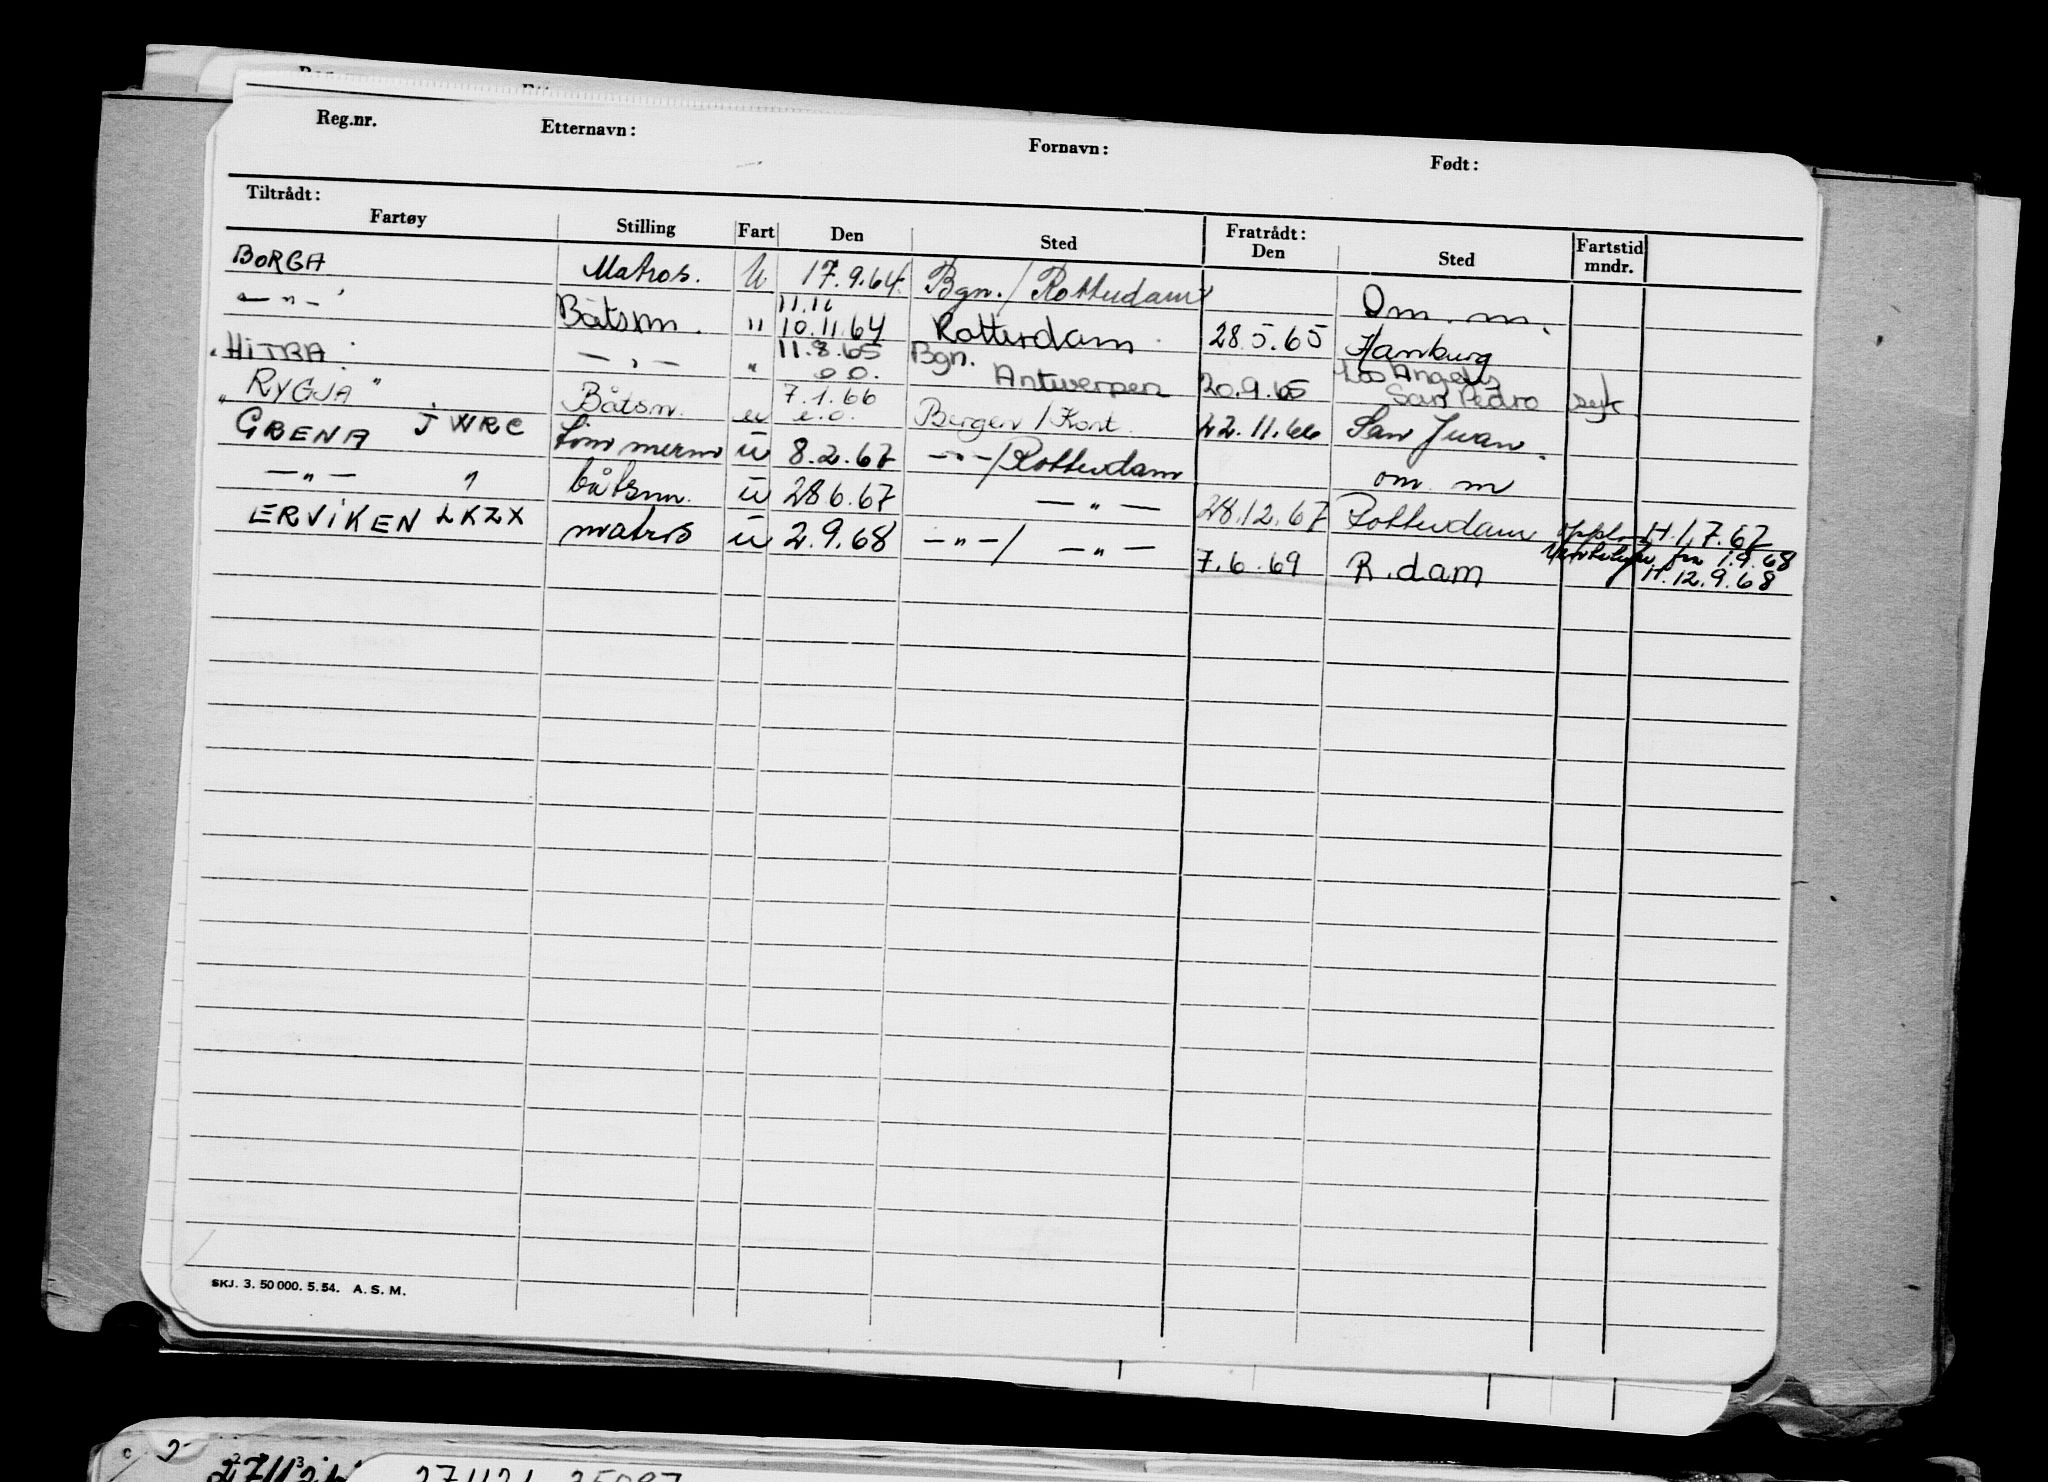 Reg.nr. Etternavn: Fornavn: Født:
Tiltrådt: Fratrådt:
Fartøy Stilling Fart Den Sted Den Sted Fartstid mndr.
BORGA Matros. U 17.9.64. Bgn. / Rotterdam Om. m.
— " — Båtsm. " 11.11 10.11.64 Rotterdam 28.5.65 Hamburg
"HITRA — " — " 11.8.65 e.o. Bgn. Antwerpen 20.9.65 Los Angeles San Pedro syk
"RYGJA" Båtsm. u 7.1.66 e.o. Bergen / Kont. 22.11.66 San Juan.
GRENA JWRC tømmerm u 8.2.67 — " — / Rotterdam om. m
— " — " båtsm. u 28.6.67 — " — 28.12.67 Rotterdam H. 1.7.67
ERVIKEN LKZX matros u 2.9.68 — " — / — " — 7.6.69 R.dam fra 1.9.68
H. 12.9.68
SKJ. 3. 50 000. 5. 54. A. S. M.
271121 35097